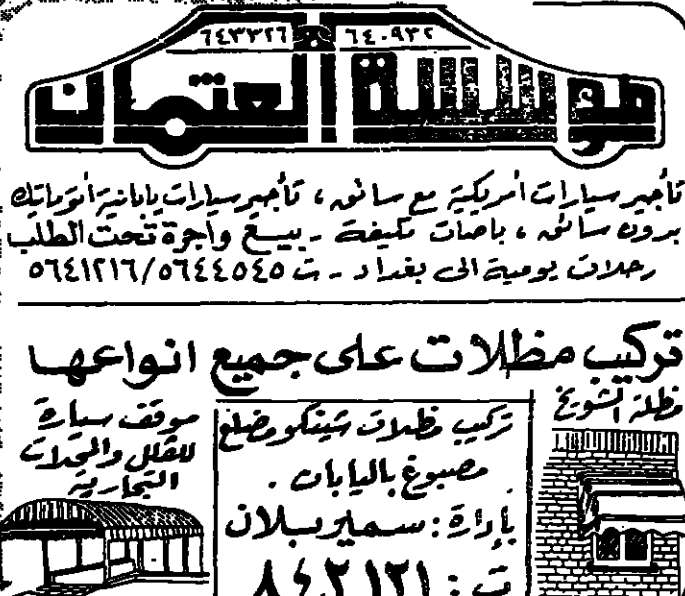 ٦٤٣٣٢٦ ٦٤٠٩٣٢
مؤسسة العتمان
تأجير سيارات أمريكية مع سائق ، تأجير سيارات يابانية أتوماتيك
بدون سائق ، باصات مكيفة - بيع واجرة تحت الطلب
رحلات يومية الى بغداد - ت ٥٦٤٤٥٤٥/٥٦٤١٢١٦
تركيب مظلات على جميع انواعها
مظلة الشويخ
تركيب مظلات شينكو مضلع
مصبوغ باليابان .
بإدارة : سمير سبلان
ت : ٨٤٢١٢١
موقف سيارة
للفلل والمحلات
التجارية